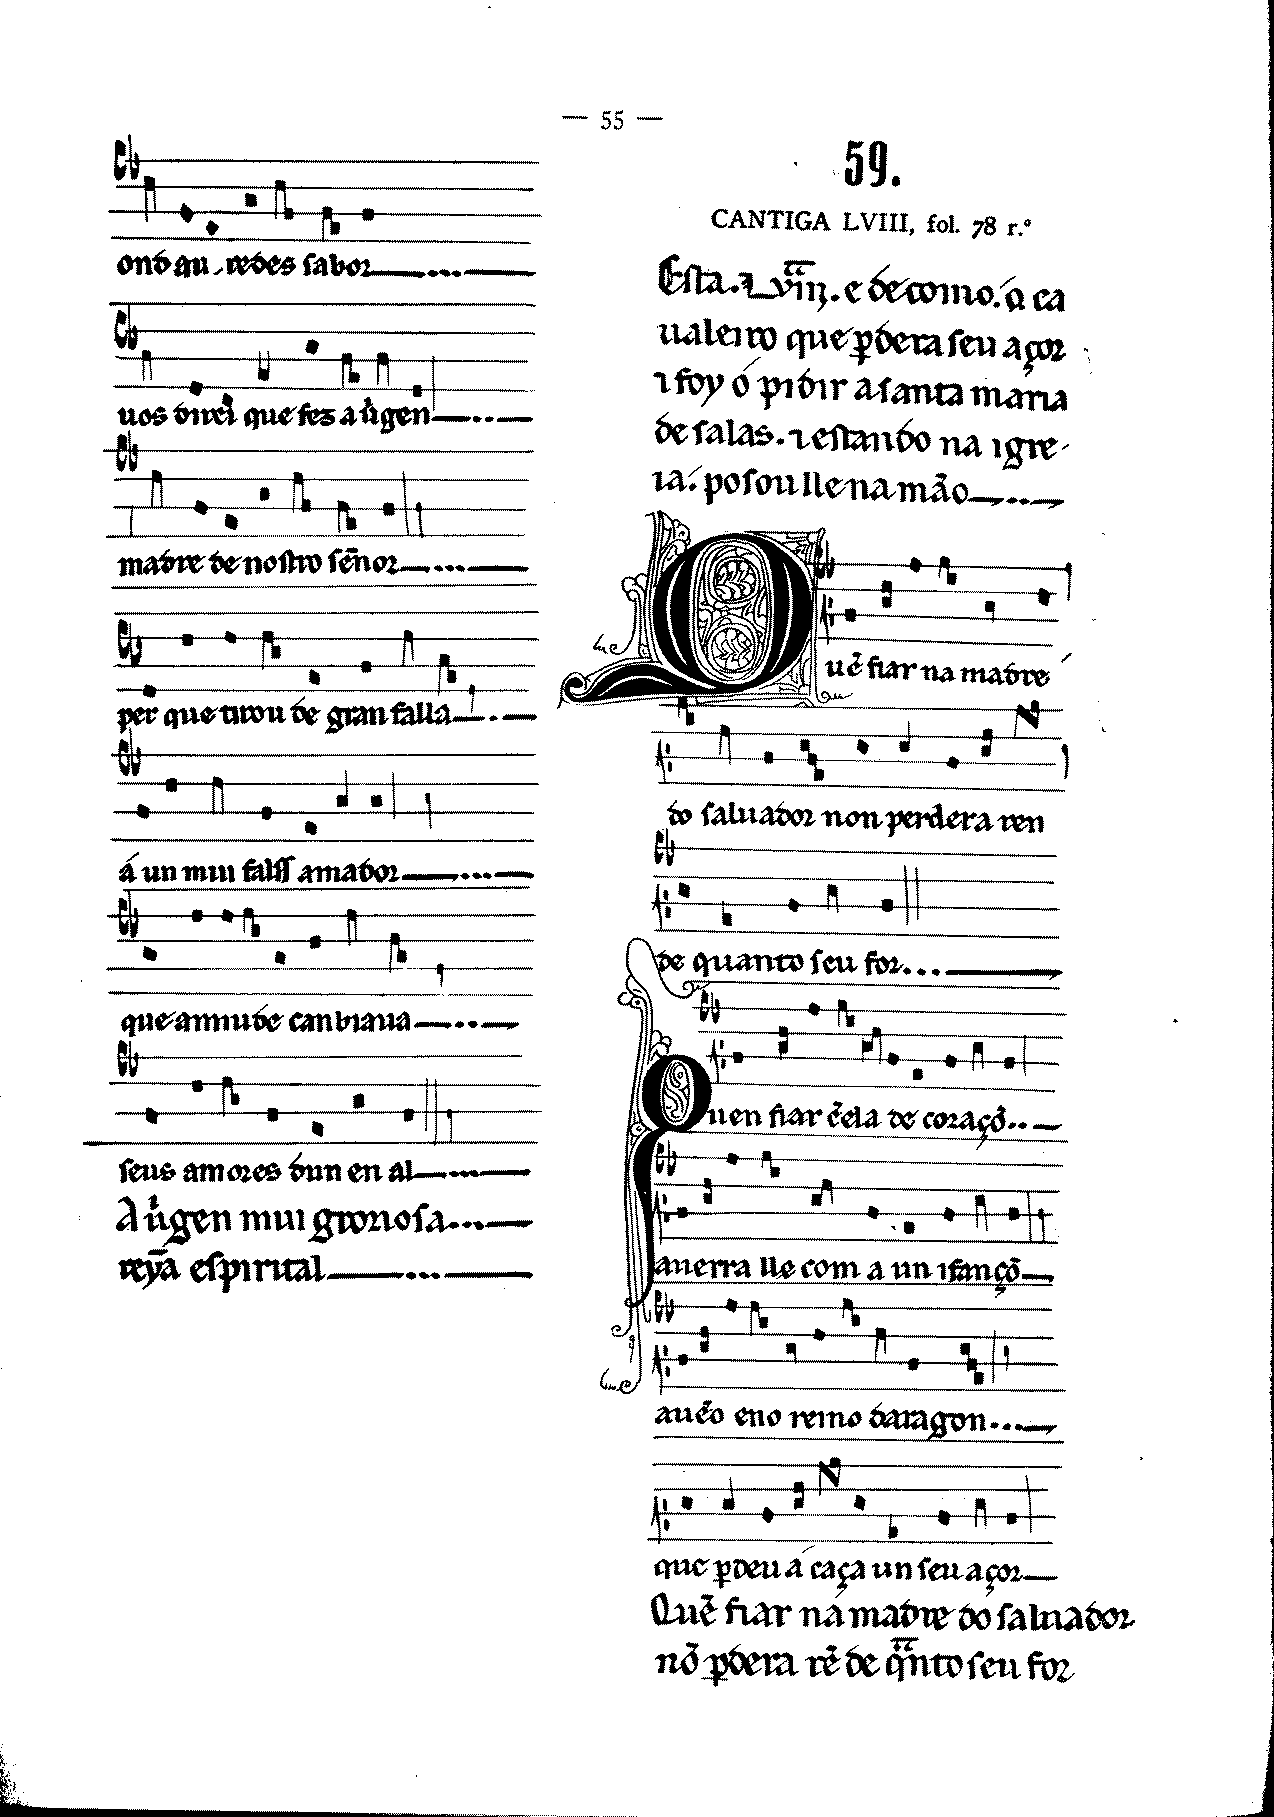 — 55 —
ond qu redes sabor
uos direi que fez a uı̃gen
madre de nostro sẽnor
per que tirou de gran falla
á un mui falss amador
que amiude canbiaua
seus amores dun en al
A uı̃gen mui grorıosa
reyã espirital
59.
CANTIGA LVIII, fol. 78 r.º
Esta. é como. o ca
ualeiro que ꝑdera seu açor
ꞇ foy ó pidir a santa maria
de salas. ꞇ estando na igre
ia. posou lle na mão
Quẽ fiar na madre
do saluador non perdera ren
de quanto seu for
Quen fiar ẽela de coraçõ
auerra lle com a un ifançõ
auẽo eno reino daragon
que ꝑdeu á caça un seu açor
Quẽ fiar na madre do saluador
nõ ꝑdera rẽ de qnto seu for